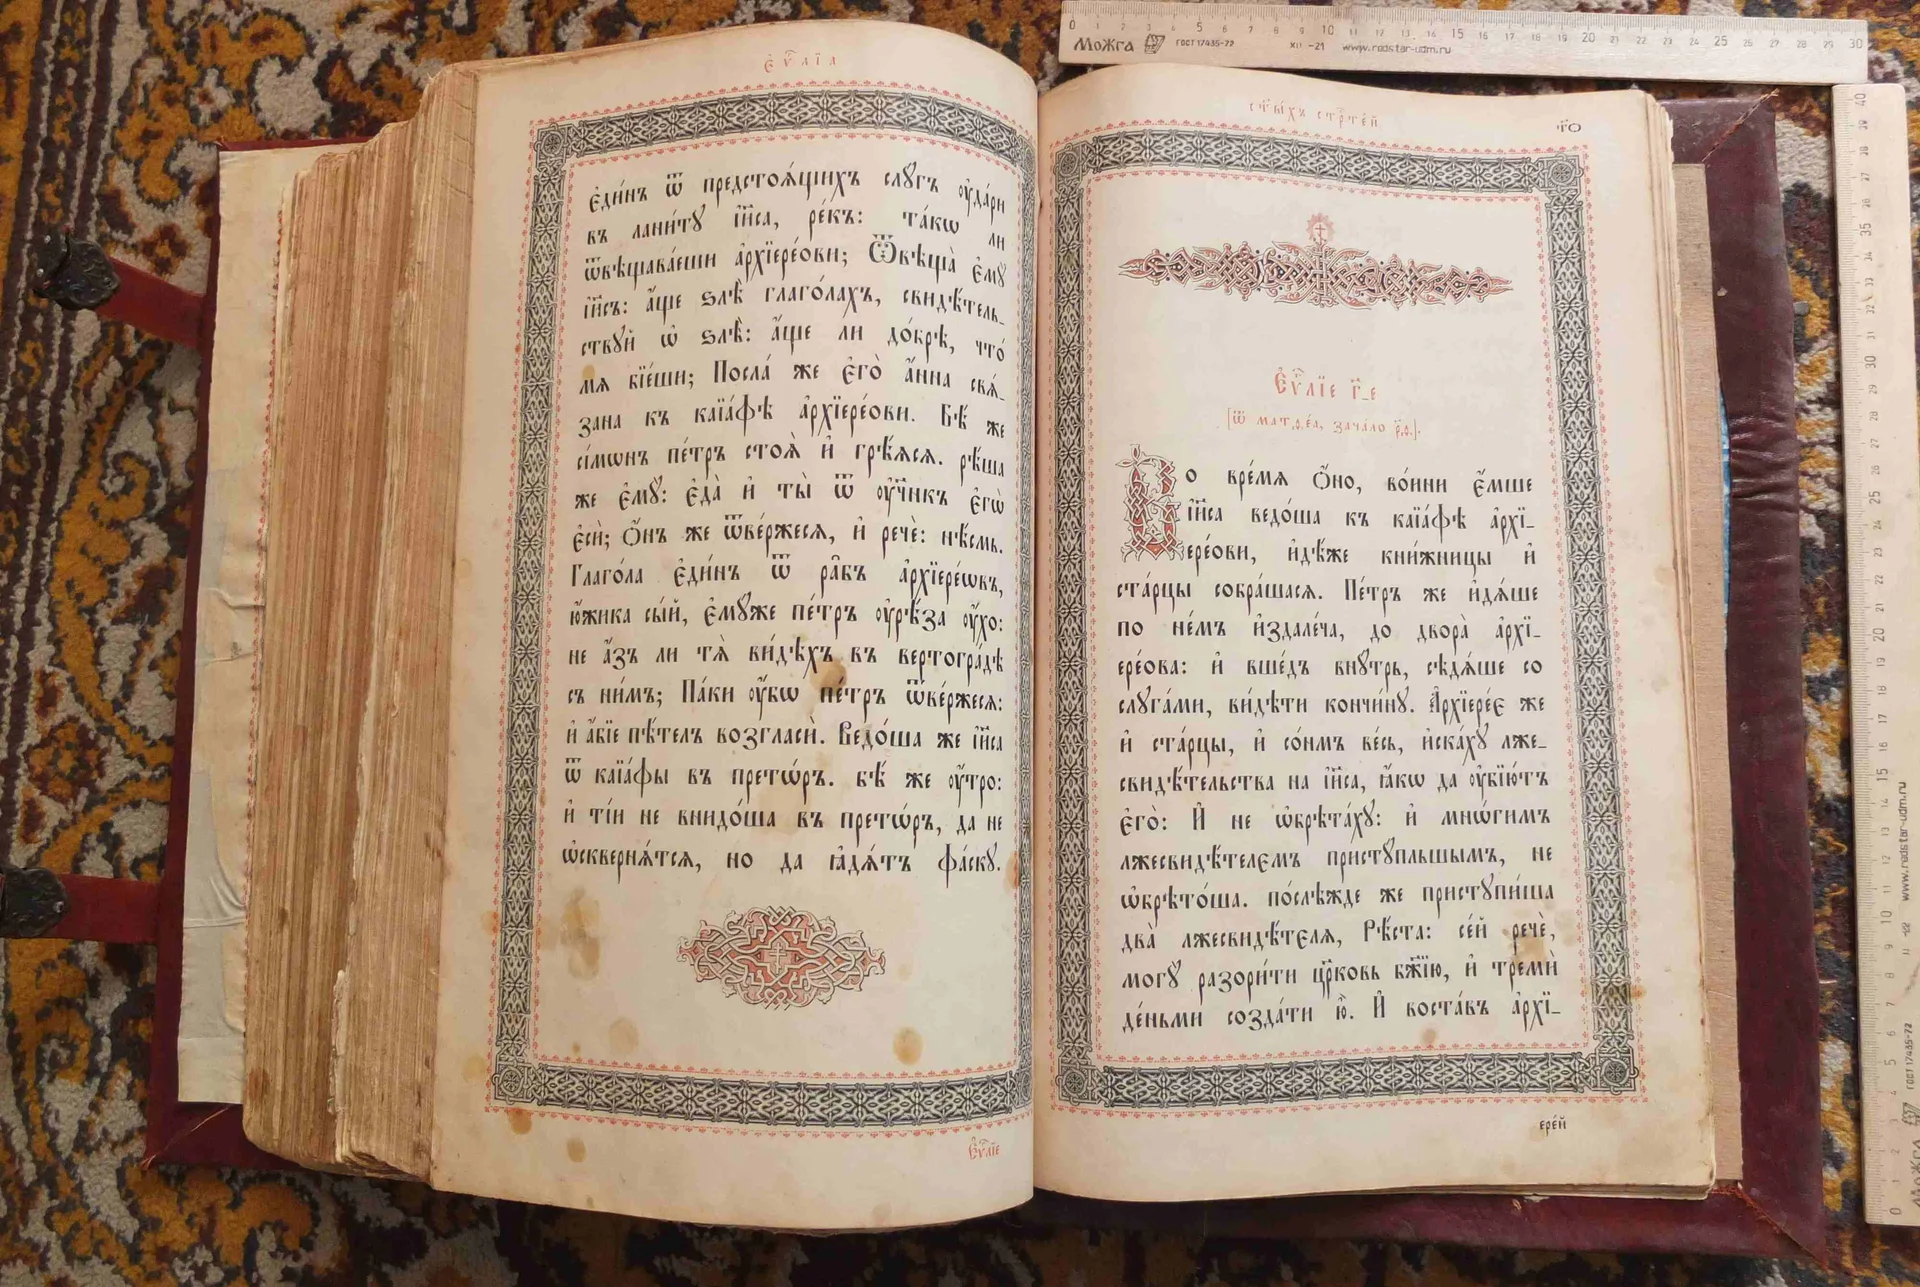 Є҆ѵⷢ҇лїа
Є҆ди́нъ ѿ предстоѧ́щихъ слꙋ́гъ ᲂу҆да́ри
въ лани́тꙋ і҆и҃са, ре́къ: та́кѡ ли
ѿвѣщава́еши а҆рхїере́ови; Ѿвѣща̀ є҆мꙋ̀
і҆и҃съ: а҆́ще ѕлѣ̀ глаго́лахъ, свидѣ́тель_
ствꙋй ѡ҆ ѕлѣ̀: а҆́ще ли до́брѣ, что́
мѧ бїе́ши; Посла́ же є҆го̀ а҆́нна свѧ́_
зана къ каїа́фѣ а҆рхїере́ови. Бѣ́ же
сі́мѡнъ пе́тръ стоѧ̀ и҆ грѣ́ѧсѧ. рѣ́ша
же є҆мꙋ̀: є҆да̀ и҆ ты̀ ѿ ᲂу҆чн҃къ є҆гѡ̀
є҆сѝ; Ѻ҆́нъ же ѿве́ржесѧ, и҆ речѐ: нѣ́смь.
Глаго́ла є҆ди́нъ ѿ ра̑бъ а҆рхїере́ѡвъ,
ю҆́жика сы́й, є҆мꙋ́же пе́тръ ᲂу҆рѣ́за ᲂу҆́хо:
не а҆́зъ ли тѧ̀ ви́дѣхъ въ вертогра́дѣ
съ ни́мъ; Па́ки ᲂу҆́бѡ пе́тръ ѿве́ржесѧ:
и҆ а҆́бїе пѣ́тель возгласѝ. Ведо́ша же і҆и҃са
ѿ каїа́фы въ претѡ́ръ. бѣ́ же ᲂу҆́тро:
и҆ ті́и не внидо́ша въ претѡ́ръ, да не
ѡ҆сквернѧ́тсѧ, но да ꙗ҆дѧ́тъ фа́скꙋ.
Є҆ѵⷢ҇лїе
ст҃ы́хъ стрⷭ҇те́й
то
Є҆ѵⷢ҇лїе г҃_е
[ѿ матѳе́а, зача́ло р҃ѳ.].
Во вре́мѧ ѻ҆́но, во́ини є҆́мше
і҆и҃са ведо́ша къ каїа́фѣ а҆рхї_
ере́ови, и҆дѣ́же кни́жницы и҆
ста́рцы собра́шасѧ. Пе́тръ же и҆дѧ́ше
по не́мъ и҆здале́ча, до двора̀ а҆рхї_
ере́ова: и҆ вше́дъ внꙋ́трь, сѣдѧ́ше со
слꙋга́ми, ви́дѣти кончи́нꙋ. А҆рхїере́є же
и҆ ста́рцы, и҆ со́нмъ ве́сь, и҆ска́хꙋ лже_
свидѣ́тельства на і҆и҃са, ꙗ҆́кѡ да ᲂу҆бїю́тъ
є҆го̀: И҆ не ѡ҆брѣта́хꙋ: и҆ мнѡ́гимъ
лжесвидѣ́телємъ пристꙋ́пльшымъ, не
ѡ҆брѣто́ша. по́слѣжде же пристꙋпи́ша
два̀ лжесвидѣ́телѧ, Рѣ́ста: се́й речѐ,
могꙋ̀ разори́ти цр҃ковь бж҃їю, и҆ тремѝ
де́ньми созда́ти ю҆̀. И҆ воста́въ а҆рхї_
ере́й
МОЖГА ГОСТ 17435-72 XII -21 www.redstar-udm.ru
0 1 2 3 4 5 6 7 8 9 10 11 12 13 14 15 16 17 18 19 20 21 22 23 24 25 26 27 28 29 30
www.redstar-udm.ru
ГОСТ 17435-72
МОЖГА